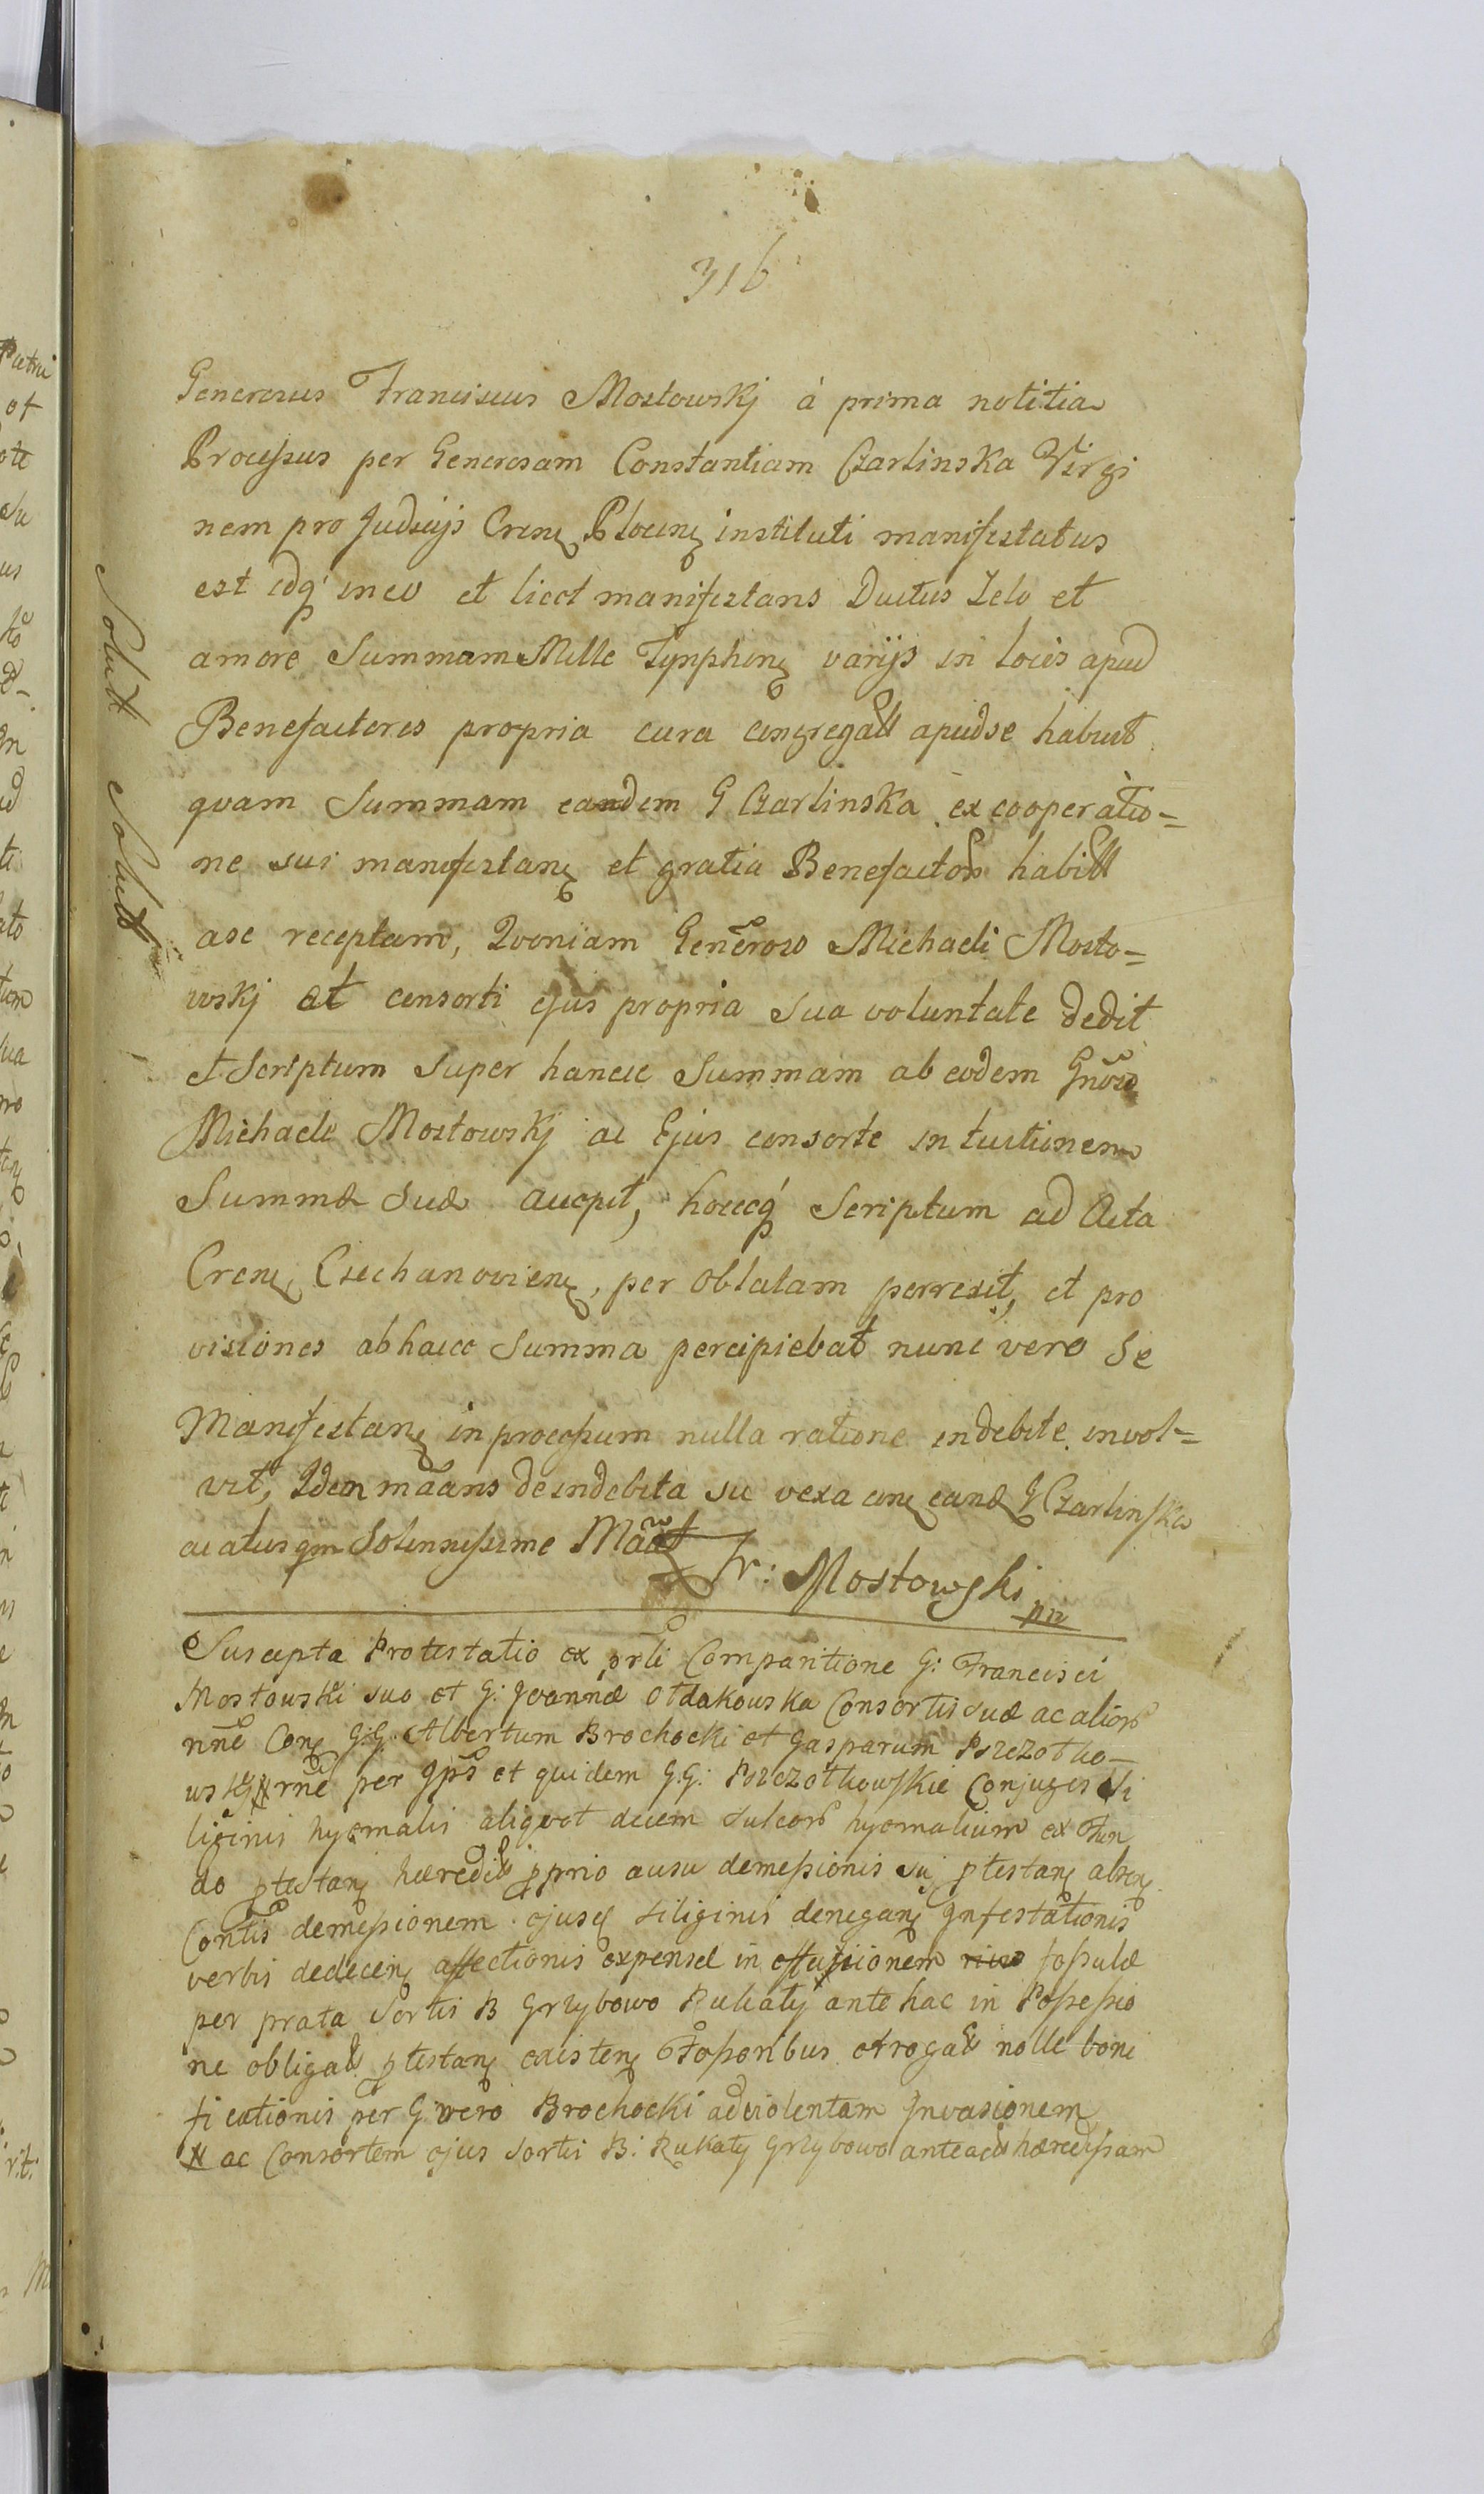 316
Generosus Franciscus Mostowskj à prima notitia
Processus per Generosam Constantiam Czarlinska Virgi
nem pro Judicijs Cren Plocen instituti manifestatus
est idq in eo et licet manifestans Ductus Zelo et
amore Summam Mille Tynphon varijs in locis apud
Benefactores propria cura congregatt apud se habuit
quam Summam eandem G Czarlinska ex cooperatio=
ne sui manifestan et gratia Benefactor habitt
a se receptam, Quoniam Generoso Michaeli Mosto=
wskj et consorti ejus propria sua voluntate dedit
et Scriptum super hancce Summam ab eodem Gnoso
Michaele Mostowskj ac Ejus consorte in tuitionem
Summæ suæ accepit, hoccq Scriptum ad Acta
Cren Ciechanovien, per oblatam porrexit, et pro
visiones ab hacce Summa percipiebat nunc vero se
Manifestan in processum nulla ratione indebite invol=
vit, Idem mãans de indebita sic vexa con eand G Czarlinska
ac atus qm Solennissime Mãat
Fr: Mostowski
mp
Suscepta Protestatio ex prli Comparitione G: Francisci
Mostowski suo et G: Joannæ Ołdakowska Consortis suæ ac alior
nne Con G:G: Albertum Brochocki et Gasparum Przezotko-
wski rne per Ips et quidem G.G: Przezotkowskie Conjuges Si
liginis hyemalis aliquot decem sulcor hyemalium ex Fun
do ptestan hæredit pprio ausu demessionis sui ptestan absen
Contis demessionem ejusd siliginis denegan Infestationis
verbis dedecen affectionis expensæ in effusionem fossulæ
per prata Sortis B Grzybowo Rukaty ante hac in Possessio
ne obligat ptestan existen Fossoribus erogat nolle boni
ficationis per G vero Brochocki ad violentam Invasionem
ac Consortem ejus sortis B: Rukaty Grzybowo anteact hæredissam
Solut Solut